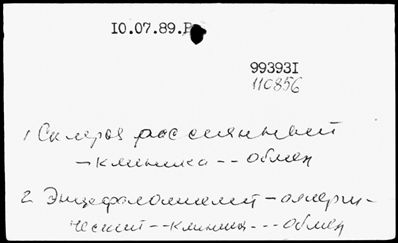 10.07.89.В
993931
110856
1 Склероз рассеянный
– клиника -- обмен
2. Энцефаломиелит – аллерги-
ческий -- клиника -- обмен